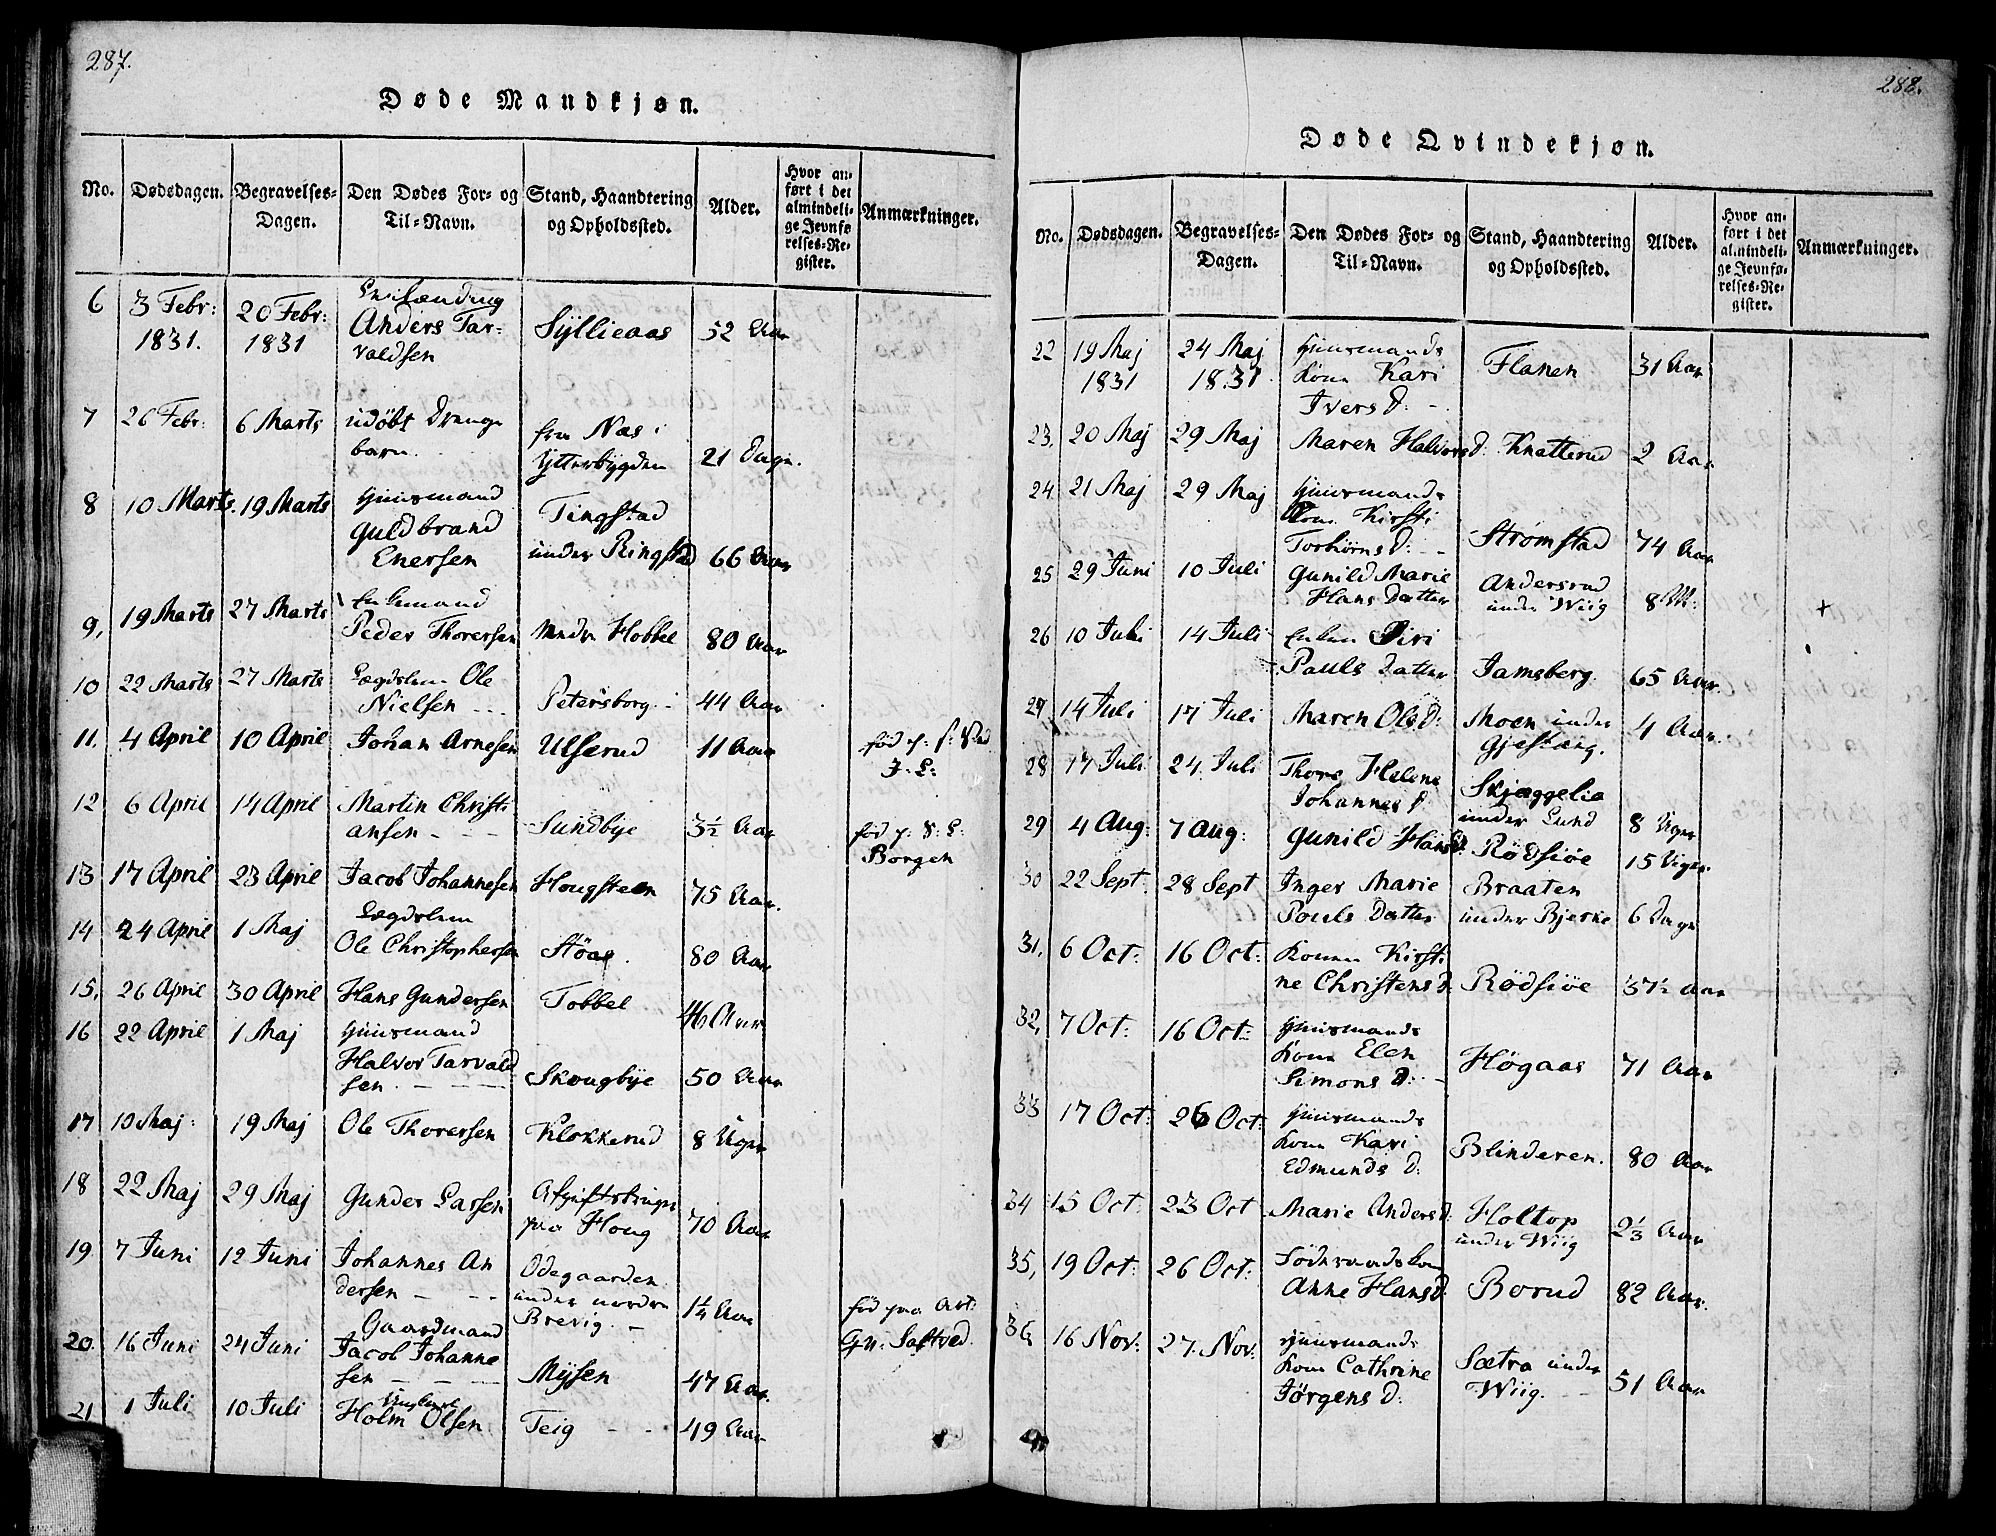 287.
Døde Mandkjøn.
No. Dødsdagen. Begravelses-Dagen. Den Dødes For- og Til-Navn. Stand, Haandtering og Opholdssted. Alder. Hvor anført i det almindelige Jevnførelses-Register. Anmærkninger.
6 3 Febr: 1831. 20 Febr: 1831 Anders Tarvaldsen Syllieaas 52 Aar
7 26 Febr: 6 Marts udøbt Drenge barn. fra Næs i Ytterbygden 21 Dage.
8 10 Marts. 19 Marts Huusmand Guldbrand Enersen Tingstad under Ringstad 66 Aar
9, 19 Marts 27 Marts Enkemand Peder Thorersen Nedre Hobbel 80 Aar
10 22 Marts 27 Marts Lægdslem Ole Nielsen Petersborg 44 Aar
11. 4 April 10 April Johan Arnesen Ulserud 11 Aar
12 6 April 14 April Martin Christiansen Sundbye 3½ Aar fød p: Borgen
13 17 April 23 April Jacob Johannesen Hougsteen 75 Aar.
14 24 April 1 Maj Lægdslem Ole Christophersen Støae. 80 Aar
15, 26 April 30 April Hans Gundersen Tobbel 46 Aar
16 22 April 1 Maj Huusmand Halvor Tarvaldsen. Skougbye 50 Aar
17 10 Maj: 19 Maj Ole Thorersen Klokkerud 8 Uger
18 22 Maj 29 Maj Gunder Larsen paa Houg 70 Aar
19 7 Juni 12 Juni Johannes Andersen Ödegaarden under nordre Brevig. 1¼ Aar fød paa
20. 16 Juni 24 Juni Gaardmand Jacob Johannesen Mysen 47 Aar. Gu: Saltved.
21 1 Juli 10 Juli Ungkarl Holm Olsen Teig 49 Aar
288.
Døde Qvindekjøn.
No. Dødsdagen. Begravelses-Dagen. Den Dødes For- og Til-Navn. Stand, Haandtering og Opholdssted. Alder. Hvor anført i det almindelige Jevnførelses-Register. Anmærkninger.
22 19 Maj 1831 24 Maj 1831. Huusmands Kone Kari Ivers D: Flanen 31 Aar
23. 20 Maj 29 Maj Maren Halvors D: Knatterud 2 Aar
24 21 Maj 29 Maj Huusmands Kone Kirsti Torbiørns D: Strømstad 74 Aar
25 29 Juni 10 Juli Gunild Marie Hans Datter Andersrud under Wiig 8 M: +
26 10 Juli 14 Juli Enken Siri Pauls Datter Jamsberg. 65 Aar.
27 14 Juli 17 Juli Maren Ols D: Moen under Gjestang. 4 Aar.
28 17 Juli 24 Juli Thora Helene Johannes D: Skjæggelia under Lund 8 Uger
29 4 Aug: 7 Aug: Gunild Hans D: Rødsiøe 15 Uger
30 22 Sept. 28 Sept Inger Marie Pouls Datter Braaten under Bjerke 6 Dage
31. 6 Oct: 16 Oct: Konen Kirstine Christens D: Rødsiøe 37½ Aar
32, 7 Oct: 16 Oct: Huusmands Kone Elen Simons D: Høgaas 71 Aar
33 17 Oct: 26 Oct: Huusmands Kone Kari Edmunds D: Blinderen. 80 Aar
34 15 Oct: 23 Oct Marie Anders D: Holtop under Wiig 2⅓ Aar
35, 19 Oct: 26 Oct: Føderaadskone Anne Hans D. Borud 82 Aar.
36 16 Nov: 27. Nov: Huusmands Kone Cathrine Jørgens D: Sætra under Wiig. 51 Aar